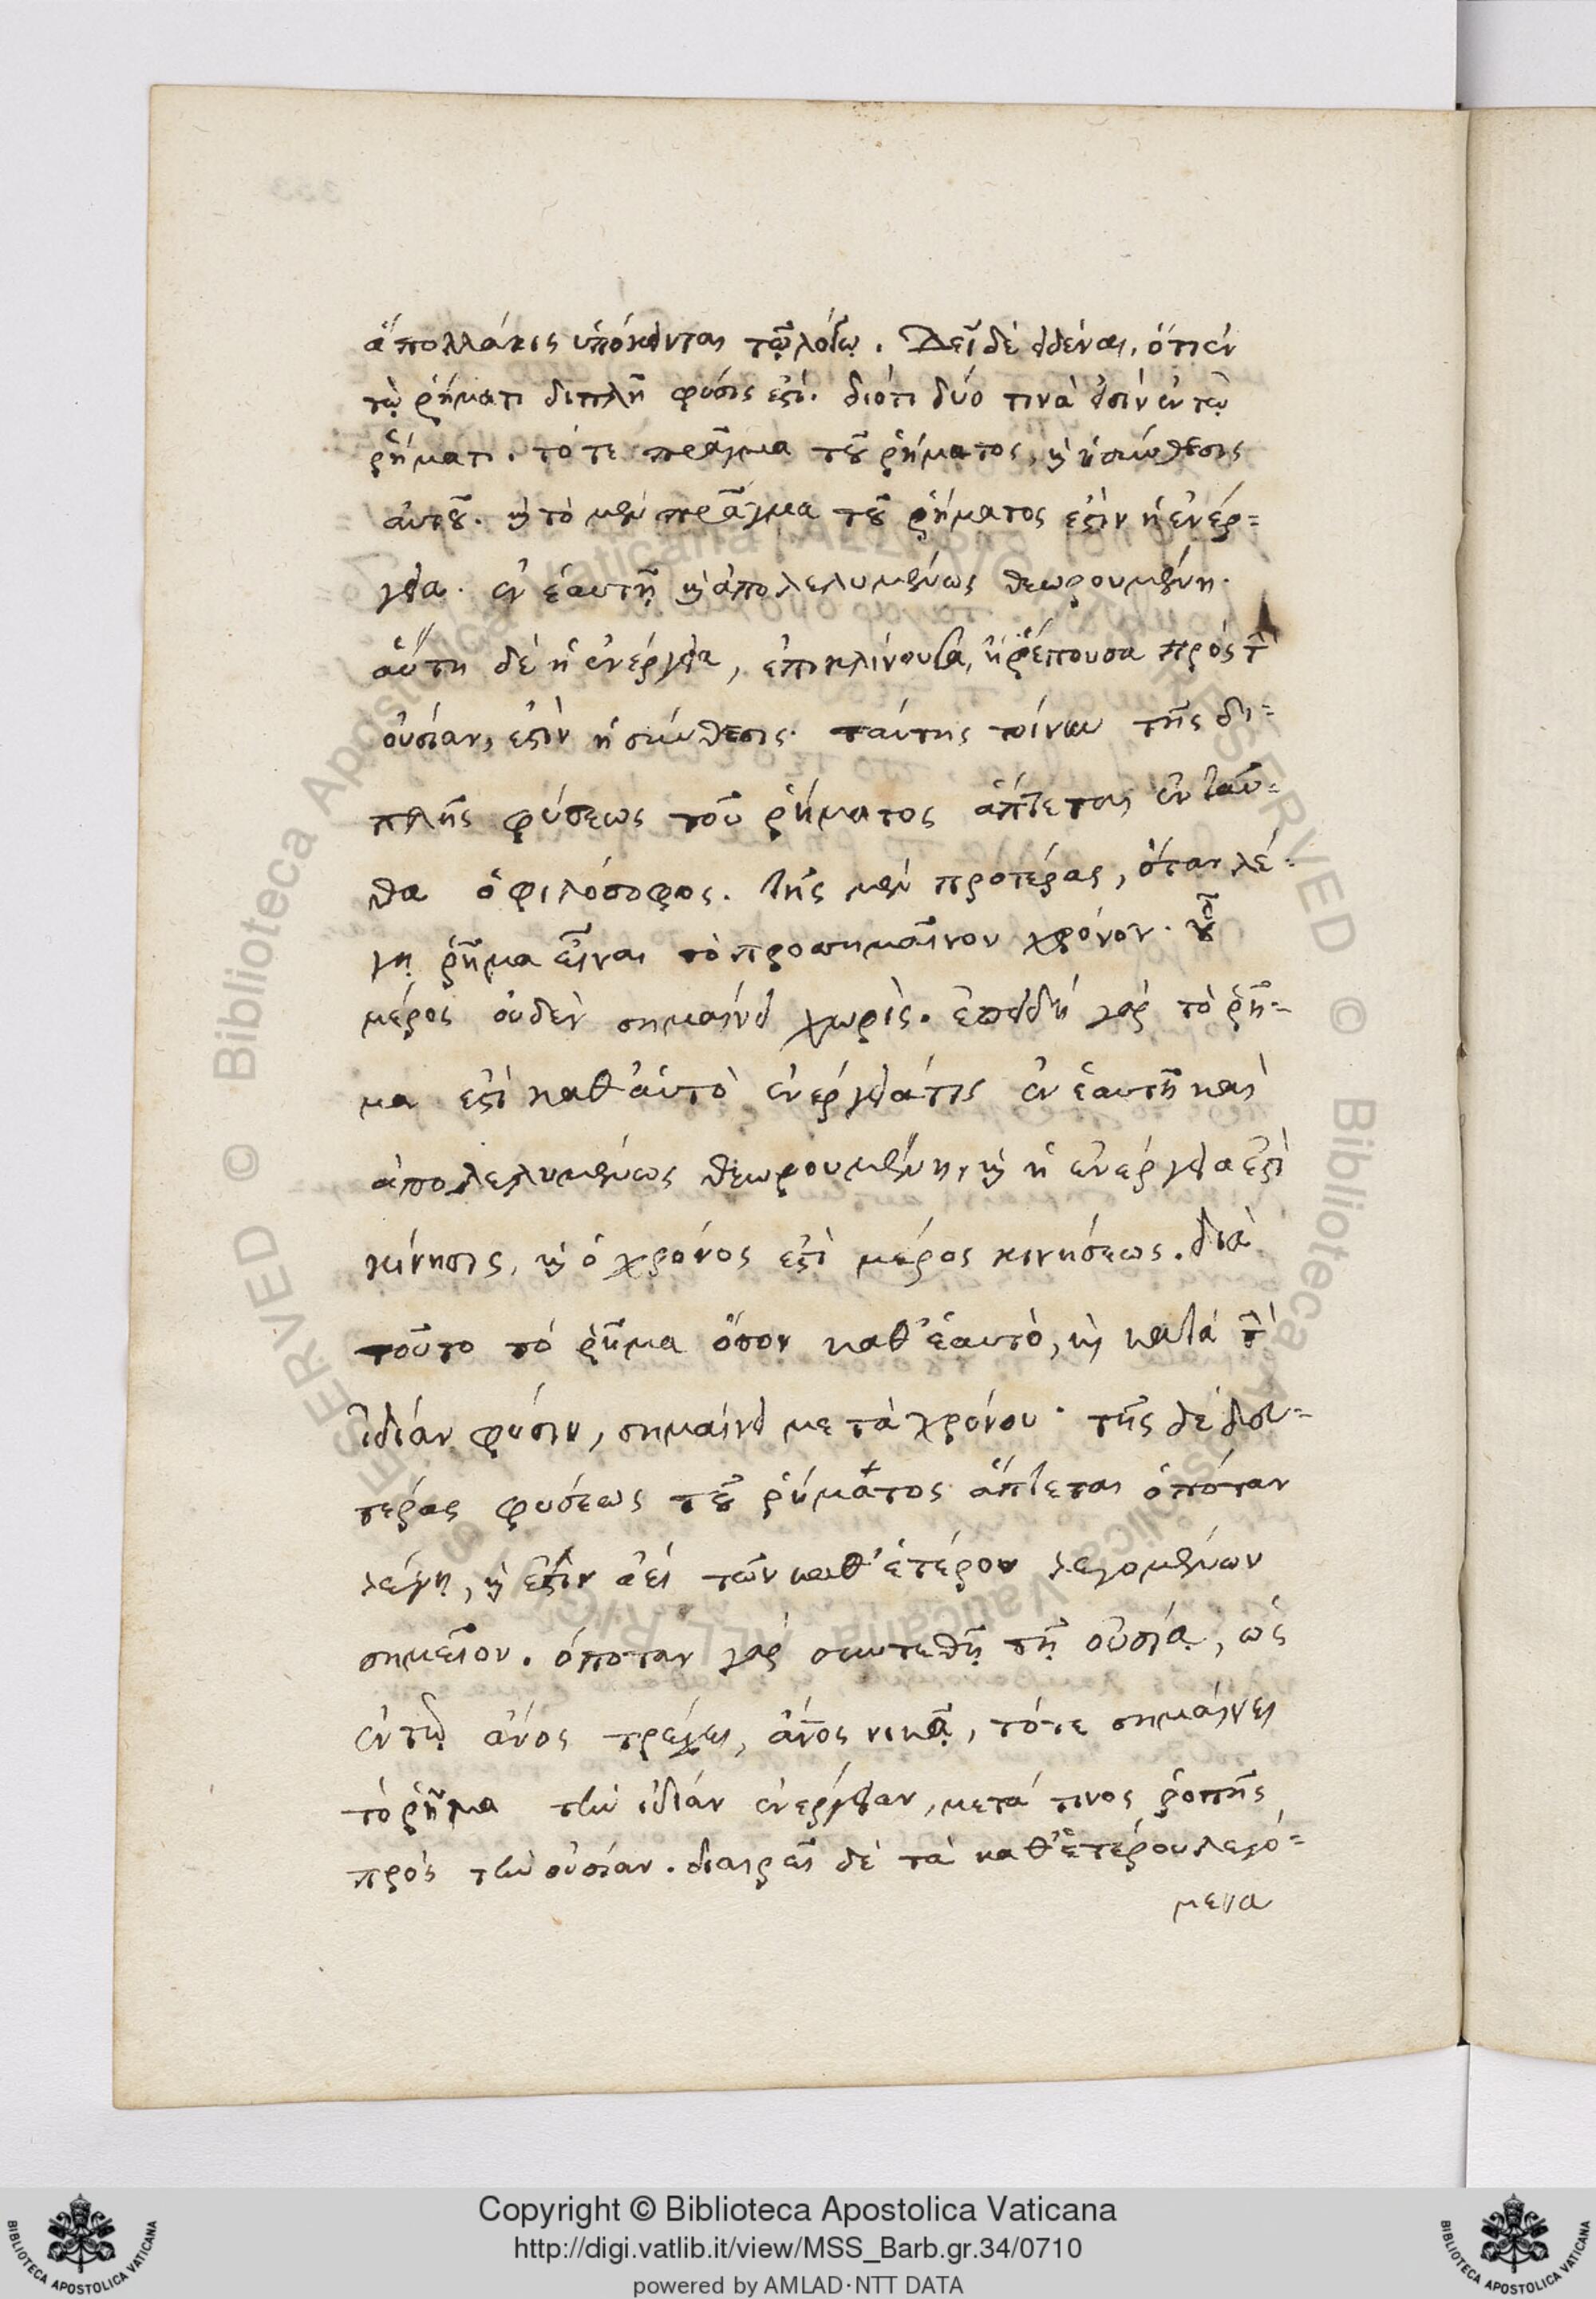 ἃ πολλάκις ὑπόκεινται τῷ λόγῳ. Δεῖ δὲ εἰδέναι, ὅτι ἐν
τῷ ῥήματι διπλῆ φύσις ἐστί. διότι δύο τινὰ εἰσὶν ἐν τῷ
ῥήματι. τό τε πρᾶγμα τοῦ ῥήματος, καὶ ἡ σύνθεσις
αὐτοῦ. καὶ τὸ μὲν πρᾶγμα τοῦ ῥήματος ἐστὶν ἡ ἐνέρ=
γεια. ἐν ἑαυτῇ καὶ ἀπολελυμένως θεωρουμένη.
αὕτη δὲ ἡ ἐνέργεια, ἐπικλίνουσα, ἢ ῥέπουσα πρὸς τὴν
οὐσίαν, ἐστὶν ἡ σύνθεσις. ταύτης τοίνυν τῆς δι=
πλῆς φύσεως τοῦ ῥήματος ἅπτεται ἐνταῦ=
θα ὁ φιλόσοφος. τῆς μὲν προτέρας, ὅταν λέ=
γῃ ῥῆμα εἶναι τὸ προσημαῖνον χρόνον. οὗ
μέρος οὐδὲν σημαίνει χωρίς. ἐπειδὴ γὰρ τὸ ῥῆ=
μα ἐστὶ καθ' αὑτὸ ἐνέργειά τις ἐν ἑαυτῇ καὶ
ἀπολελυμένως θεωρουμένη, καὶ ἡ ἐνέργεια ἐστὶ
κίνησις, καὶ ὁ χρόνος ἐστὶ μέρος κινήσεως. διὰ
τοῦτο τὸ ῥῆμα ὅσον καθ' ἑαυτὸ, καὶ κατὰ τὴν
ἰδίαν φύσιν, σημαίνει μετὰ χρόνου. τῆς δὲ δευ=
τέρας φύσεως τοῦ ῥήματος ἅπτεται ὁπόταν
λέγῃ, καὶ ἔστιν ἀεὶ τῶν καθ' ἑτέρου λεγομένων
σημεῖον. ὁπόταν γὰρ συντεθῇ τῇ οὐσίᾳ, ὡς
ἐν τῷ ἄνος τρέχει, ἄνος νικᾷ, τότε σημαίνει
τὸ ῥῆμα τὴν ἰδίαν ἐνέργειαν, μετά τινος ῥοπῆς
πρὸς τὴν οὐσίαν. διαιρεῖ δὲ τὰ καθ' ἑτέρου λεγό=
μενα
Copyright © Biblioteca Apostolica Vaticana
http://digi.vatlib.it/view/MSS_Barb.gr.34/0710
powered by AMLAD·NTT DATA